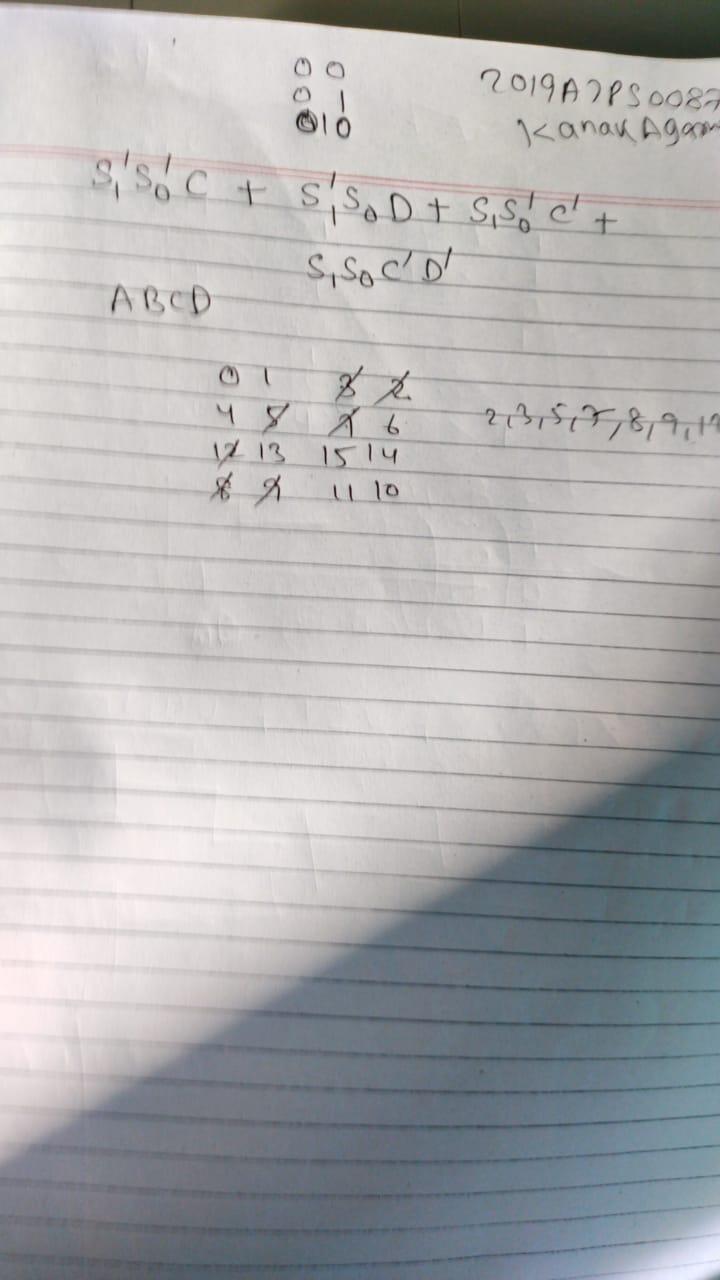 0 0
0 1
10
2019A7PS0087
Kanak
S₁'S₀'C + S₁'S₀D + S₁S₀'C' +
S₁S₀C'D'
ABCD
0 1 3 2
4 5 7 6
12 13 15 14
8 9 11 10
2,3,5,7,8,9,12